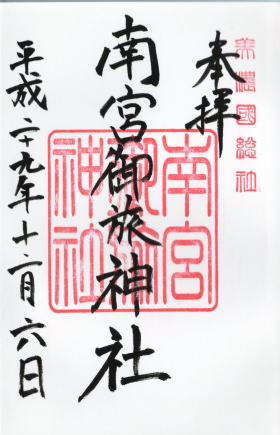 美濃國総社
奉拝
南宮御旅神社
南宮御旅神社
平成二十九年十二月六日